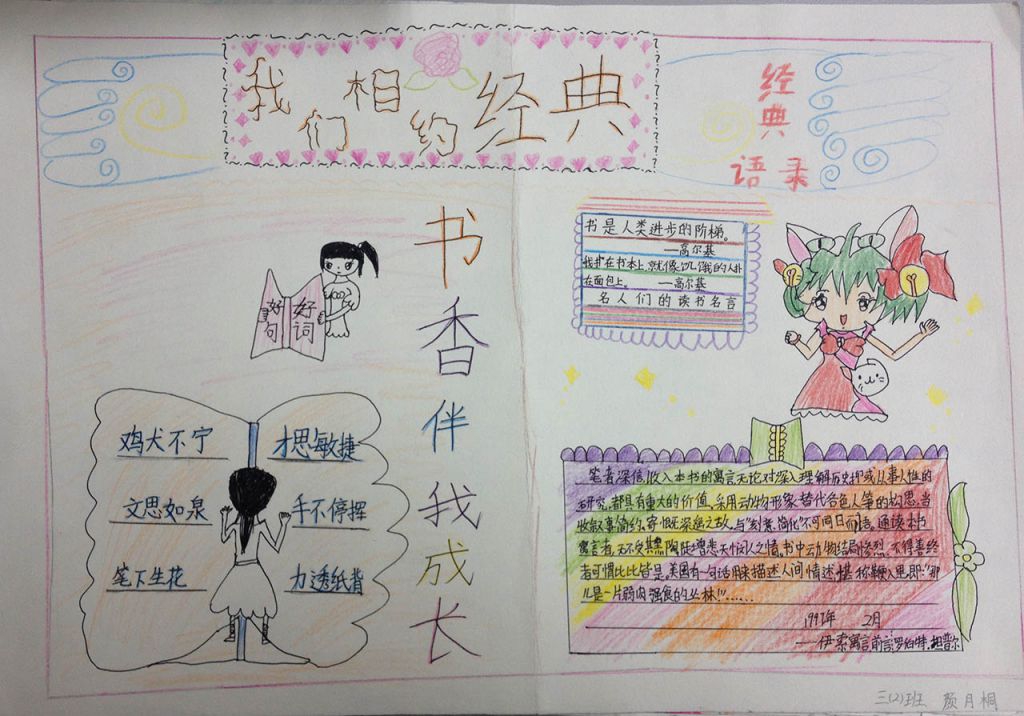 我们相约经典
经典
语录
书香伴我成长
好句
好词
鸡犬不宁
才思敏捷
文思如泉
手不停挥
笔下生花
力透纸背
书是人类进步的阶梯。
——高尔基
我扑在书本上,就像饥饿的人扑
在面包上。 ——高尔基
名人们的读书名言
笔者深信,收入本书的寓言无论对深入理解历史抑或从事人性的
研究,都具有重大的价值,采用动物形象替代各色人等的构思,当
收叙事简约,寄慨深之故,与"刻意简化"不可同日而语。通读本书
寓言者,无不受其熏陶陡增悲天悯人之情。书中动物结局惨烈,不得善终
者可惧比比皆是。美国有一句话用来描述人间情述,堪称鞭入里,即:"那
儿是一片弱肉强食的丛林!"……
1997年 2月
——伊索寓言前言罗伯特.坦普尔
三(2)班 颜月桐